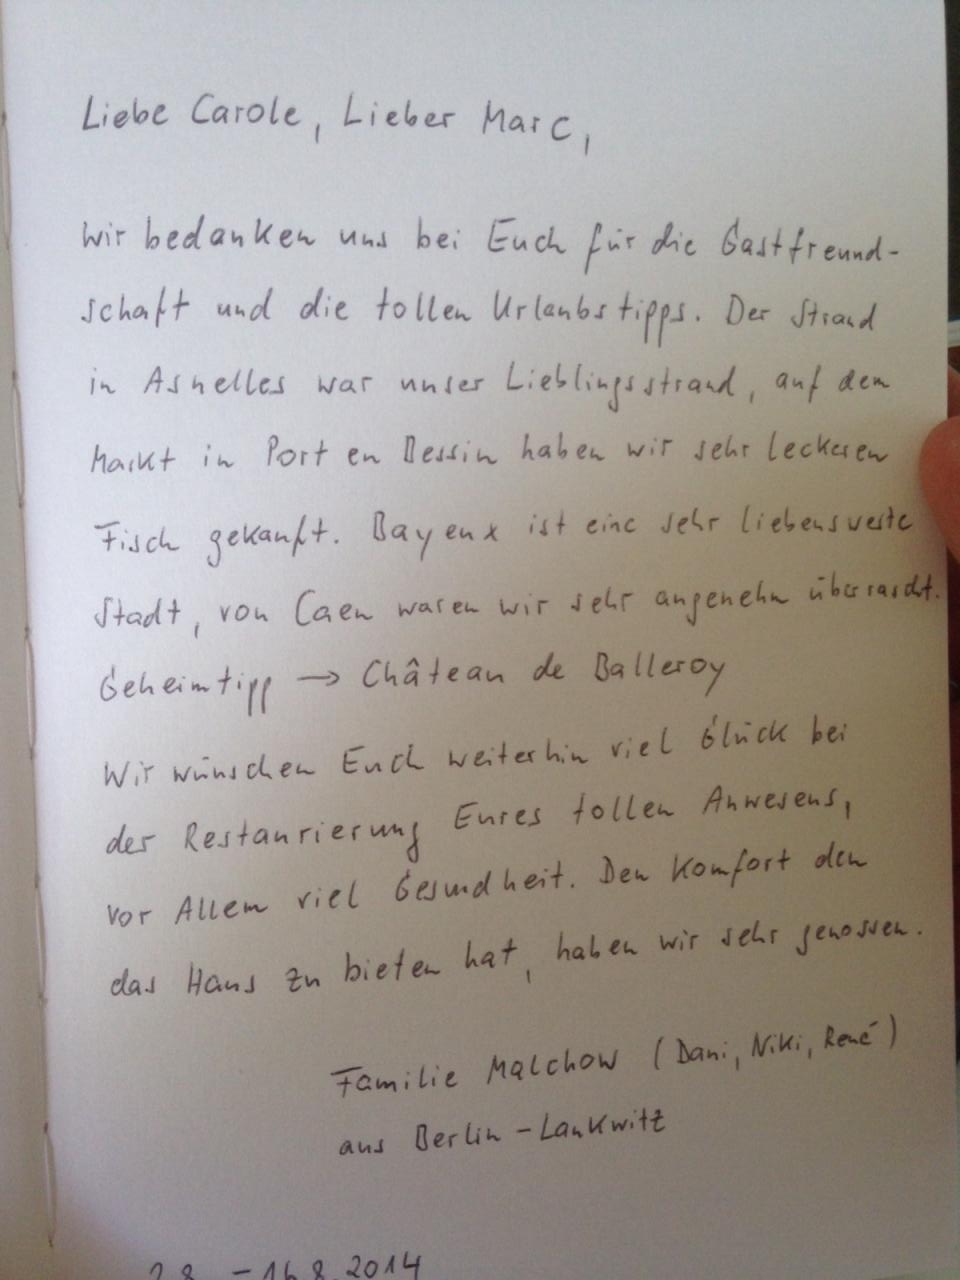 Liebe Carole, Lieber Marc,
wir bedanken uns bei Euch für die Gastfreund-
schaft und die tollen Urlaubstipps. Der Strand
in Asnelles war unser Lieblingsstrand, auf dem
Markt in Port en Bessin haben wir sehr leckeren
Fisch gekauft. Bayeux ist eine sehr liebenswerte
Stadt, von Caen waren wir sehr angenehm überrascht.
Geheimtipp → Château de Balleroy
Wir wünschen Euch weiterhin viel Glück bei
der Restaurierung Eures tollen Anwesens,
vor Allem viel Gesundheit. Den Komfort den
das Haus zu bieten hat, haben wir sehr genossen.
Familie Malchow (Dani, Niki, René)
aus Berlin-Lankwitz
2.8. - 16.8.2014